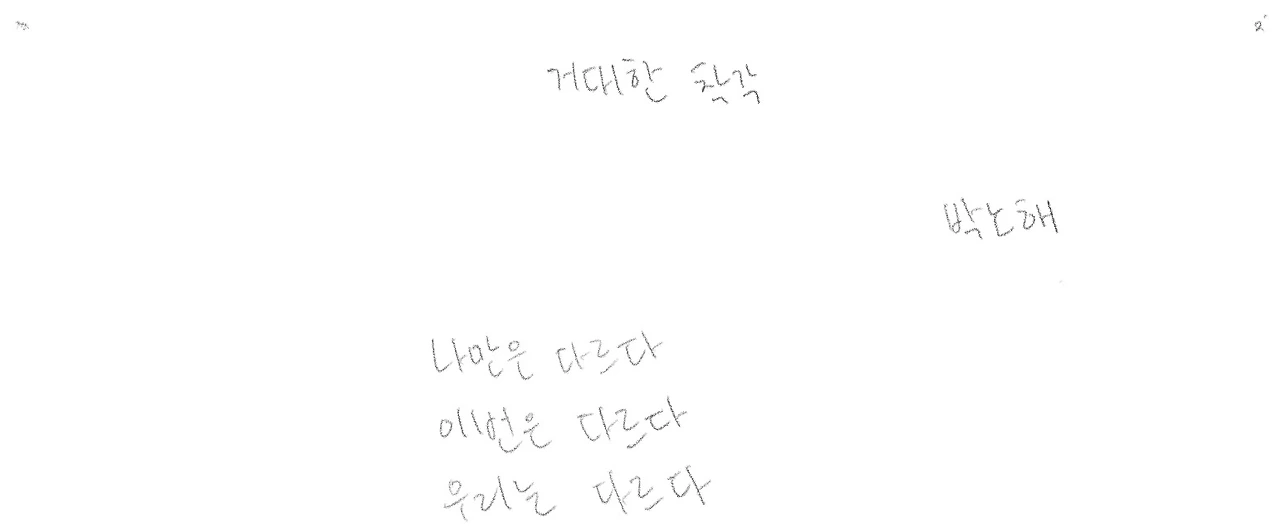 거대한 착각
박노해
나만은 다르다
이번은 다르다
우리는 다르다